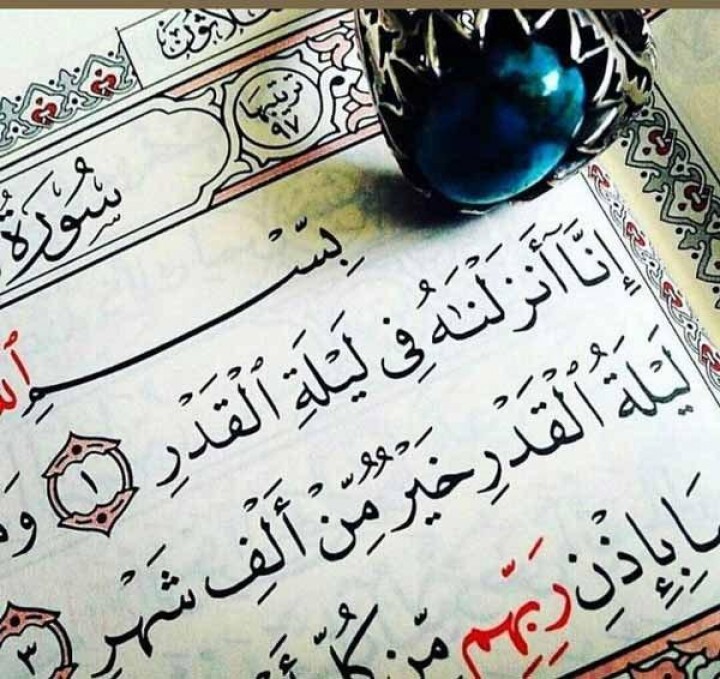 ثلاثون
ترتيبها
٩٧
سُورَةُ
بِسْمِ
إِنَّآ أَنزَلْنَٰهُ فِى لَيْلَةِ ٱلْقَدْرِ ١
لَيْلَةُ ٱلْقَدْرِ خَيْرٌ مِّنْ أَلْفِ شَهْرٍ ٣
بِإِذْنِ رَبِّهِم مِّن كُلِّ